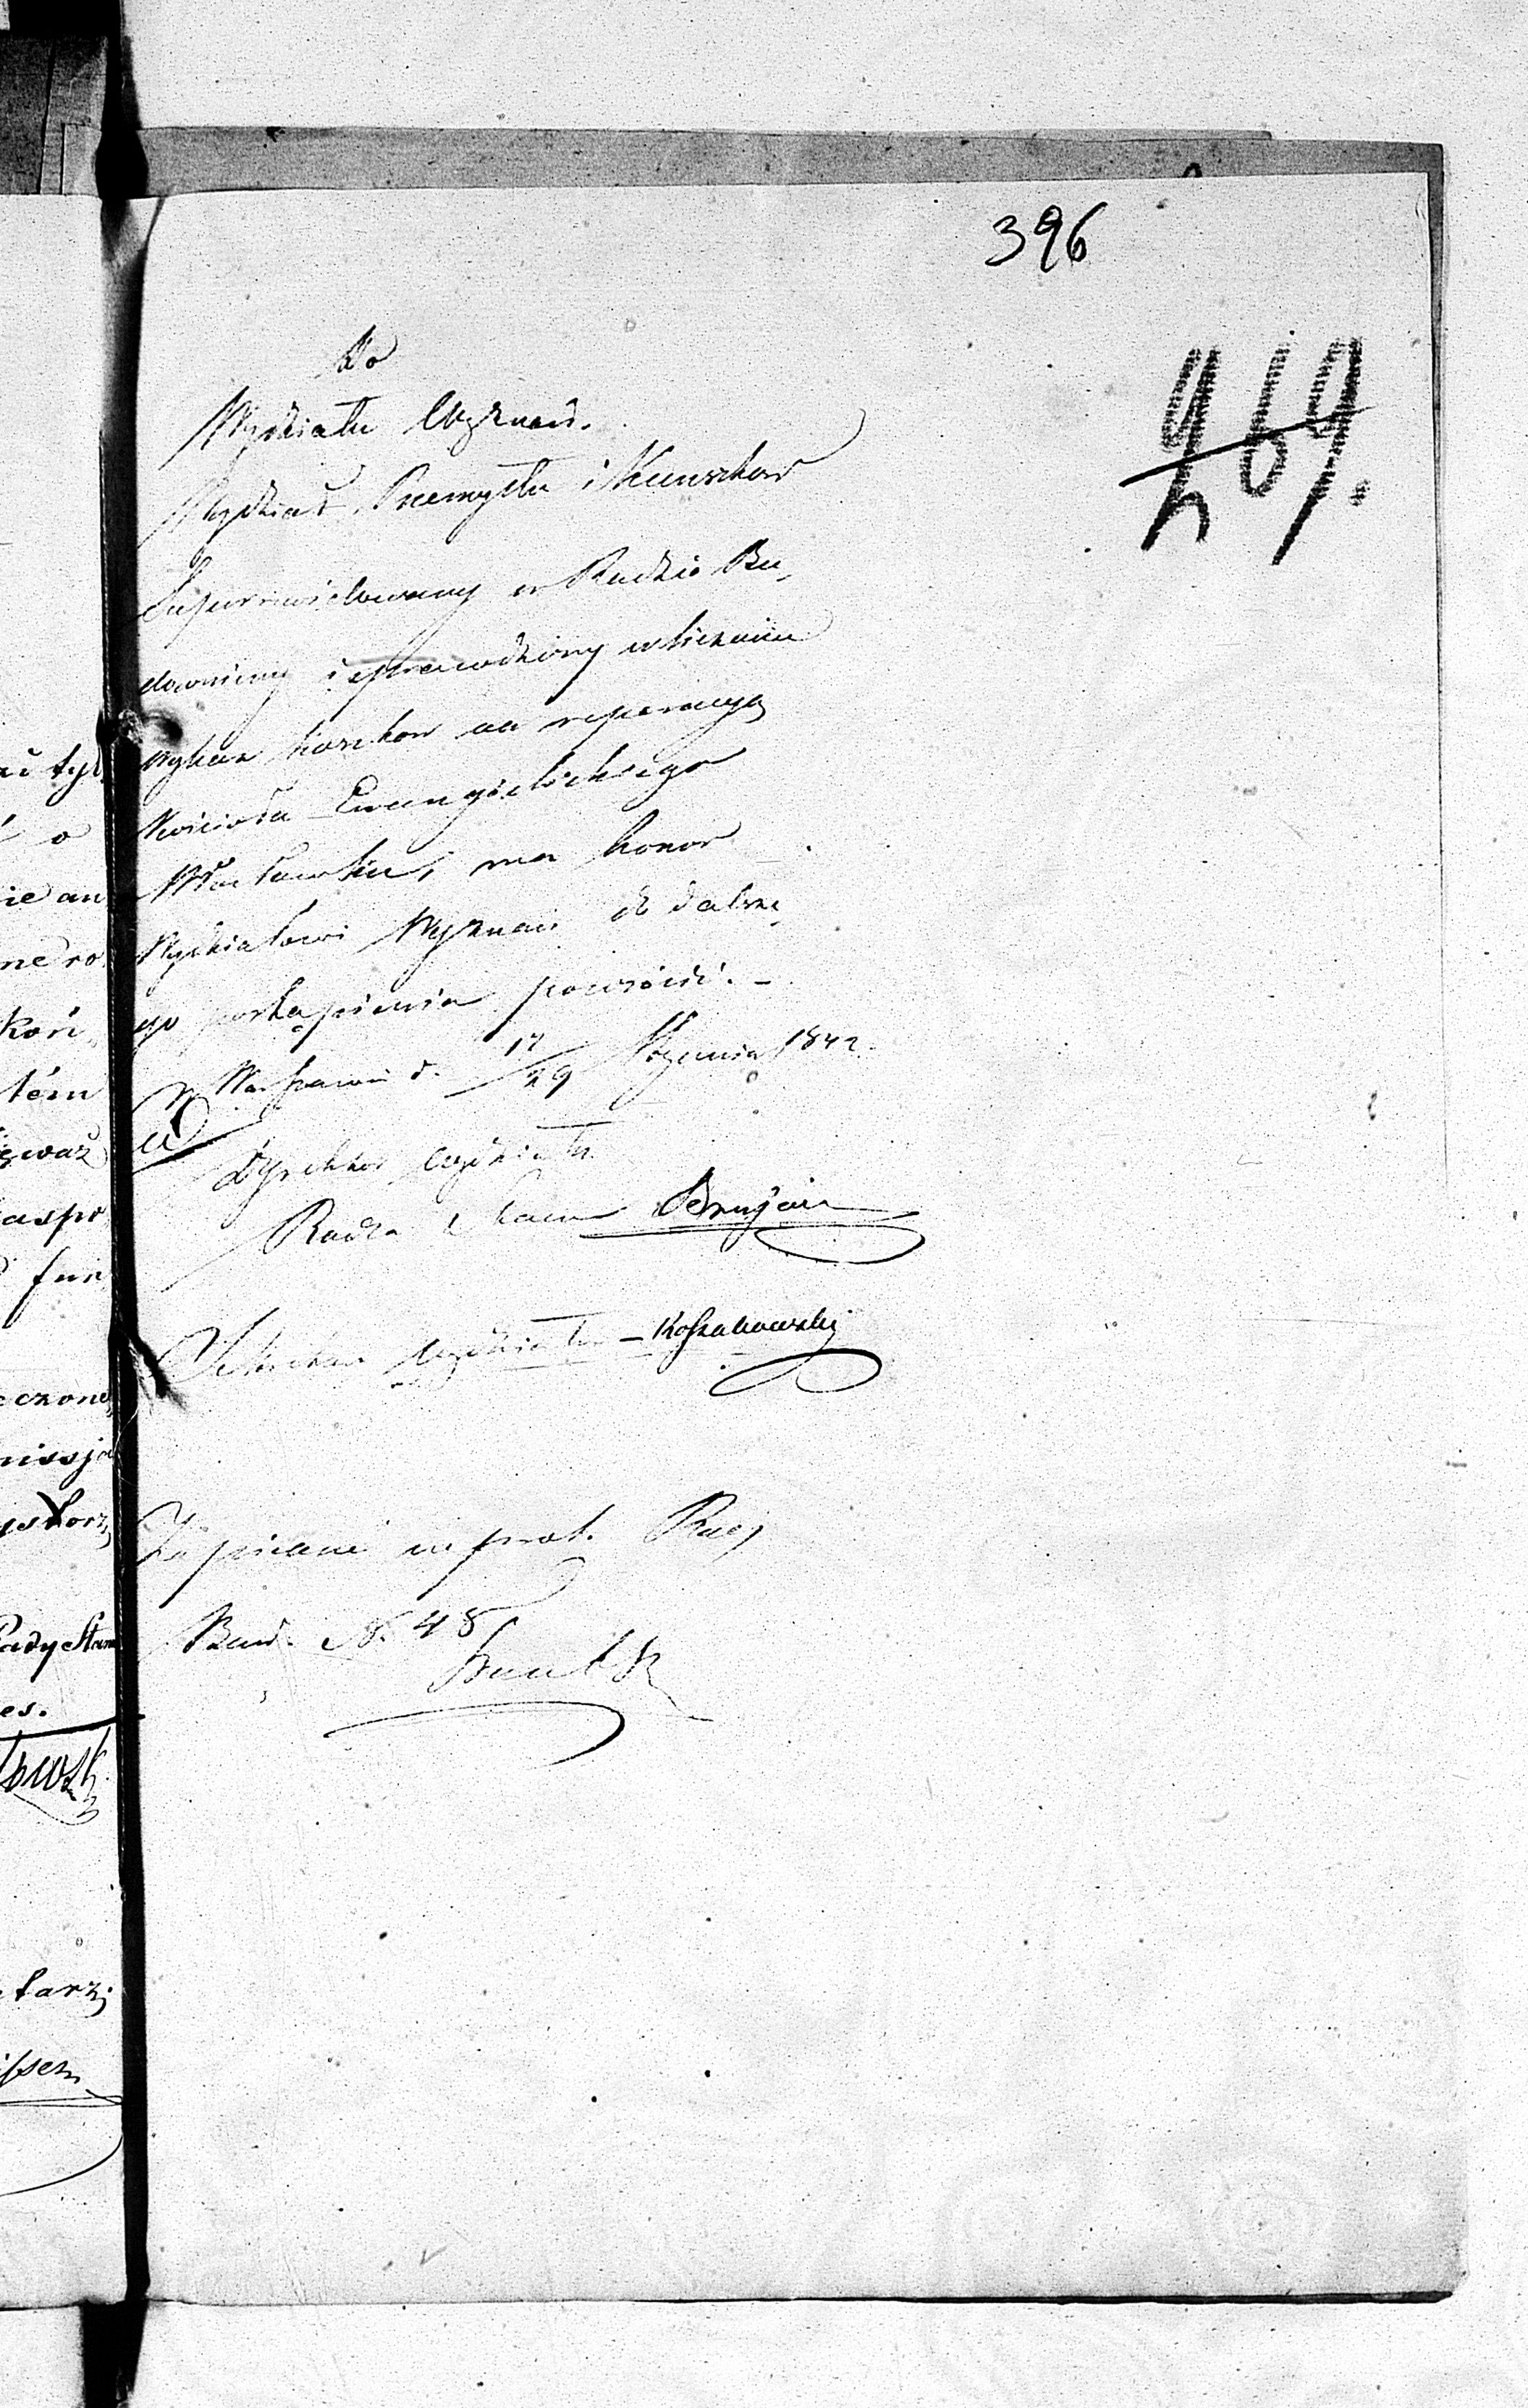 396
264.
Do
Wydziału Wyznań.
Wydział Przemysłu i Kunsztów
Superrewidowany w Radzie Bu„
downiczej i sprawdzony w liczeniu
wykaz kosztów na reperacyą
Kościoła Ewangielickiego
Włocławku, ma honor
Wydziałowi Wyznań do dalsze„
go postąpienia powrócić. –
w Warszawie d. 17/29 Stycznia 1842.
Dyrektor Wydziału
Radca Stanu
Sekretarz Wydziału – Koszakowski
Zapisano w prot. Rady
Bud. N. 48
ać tyl
o
ie an
ne ro
Koń„
tém
waż
aspo
fun
czone
missja
Rady Stanu
es.
tarz;